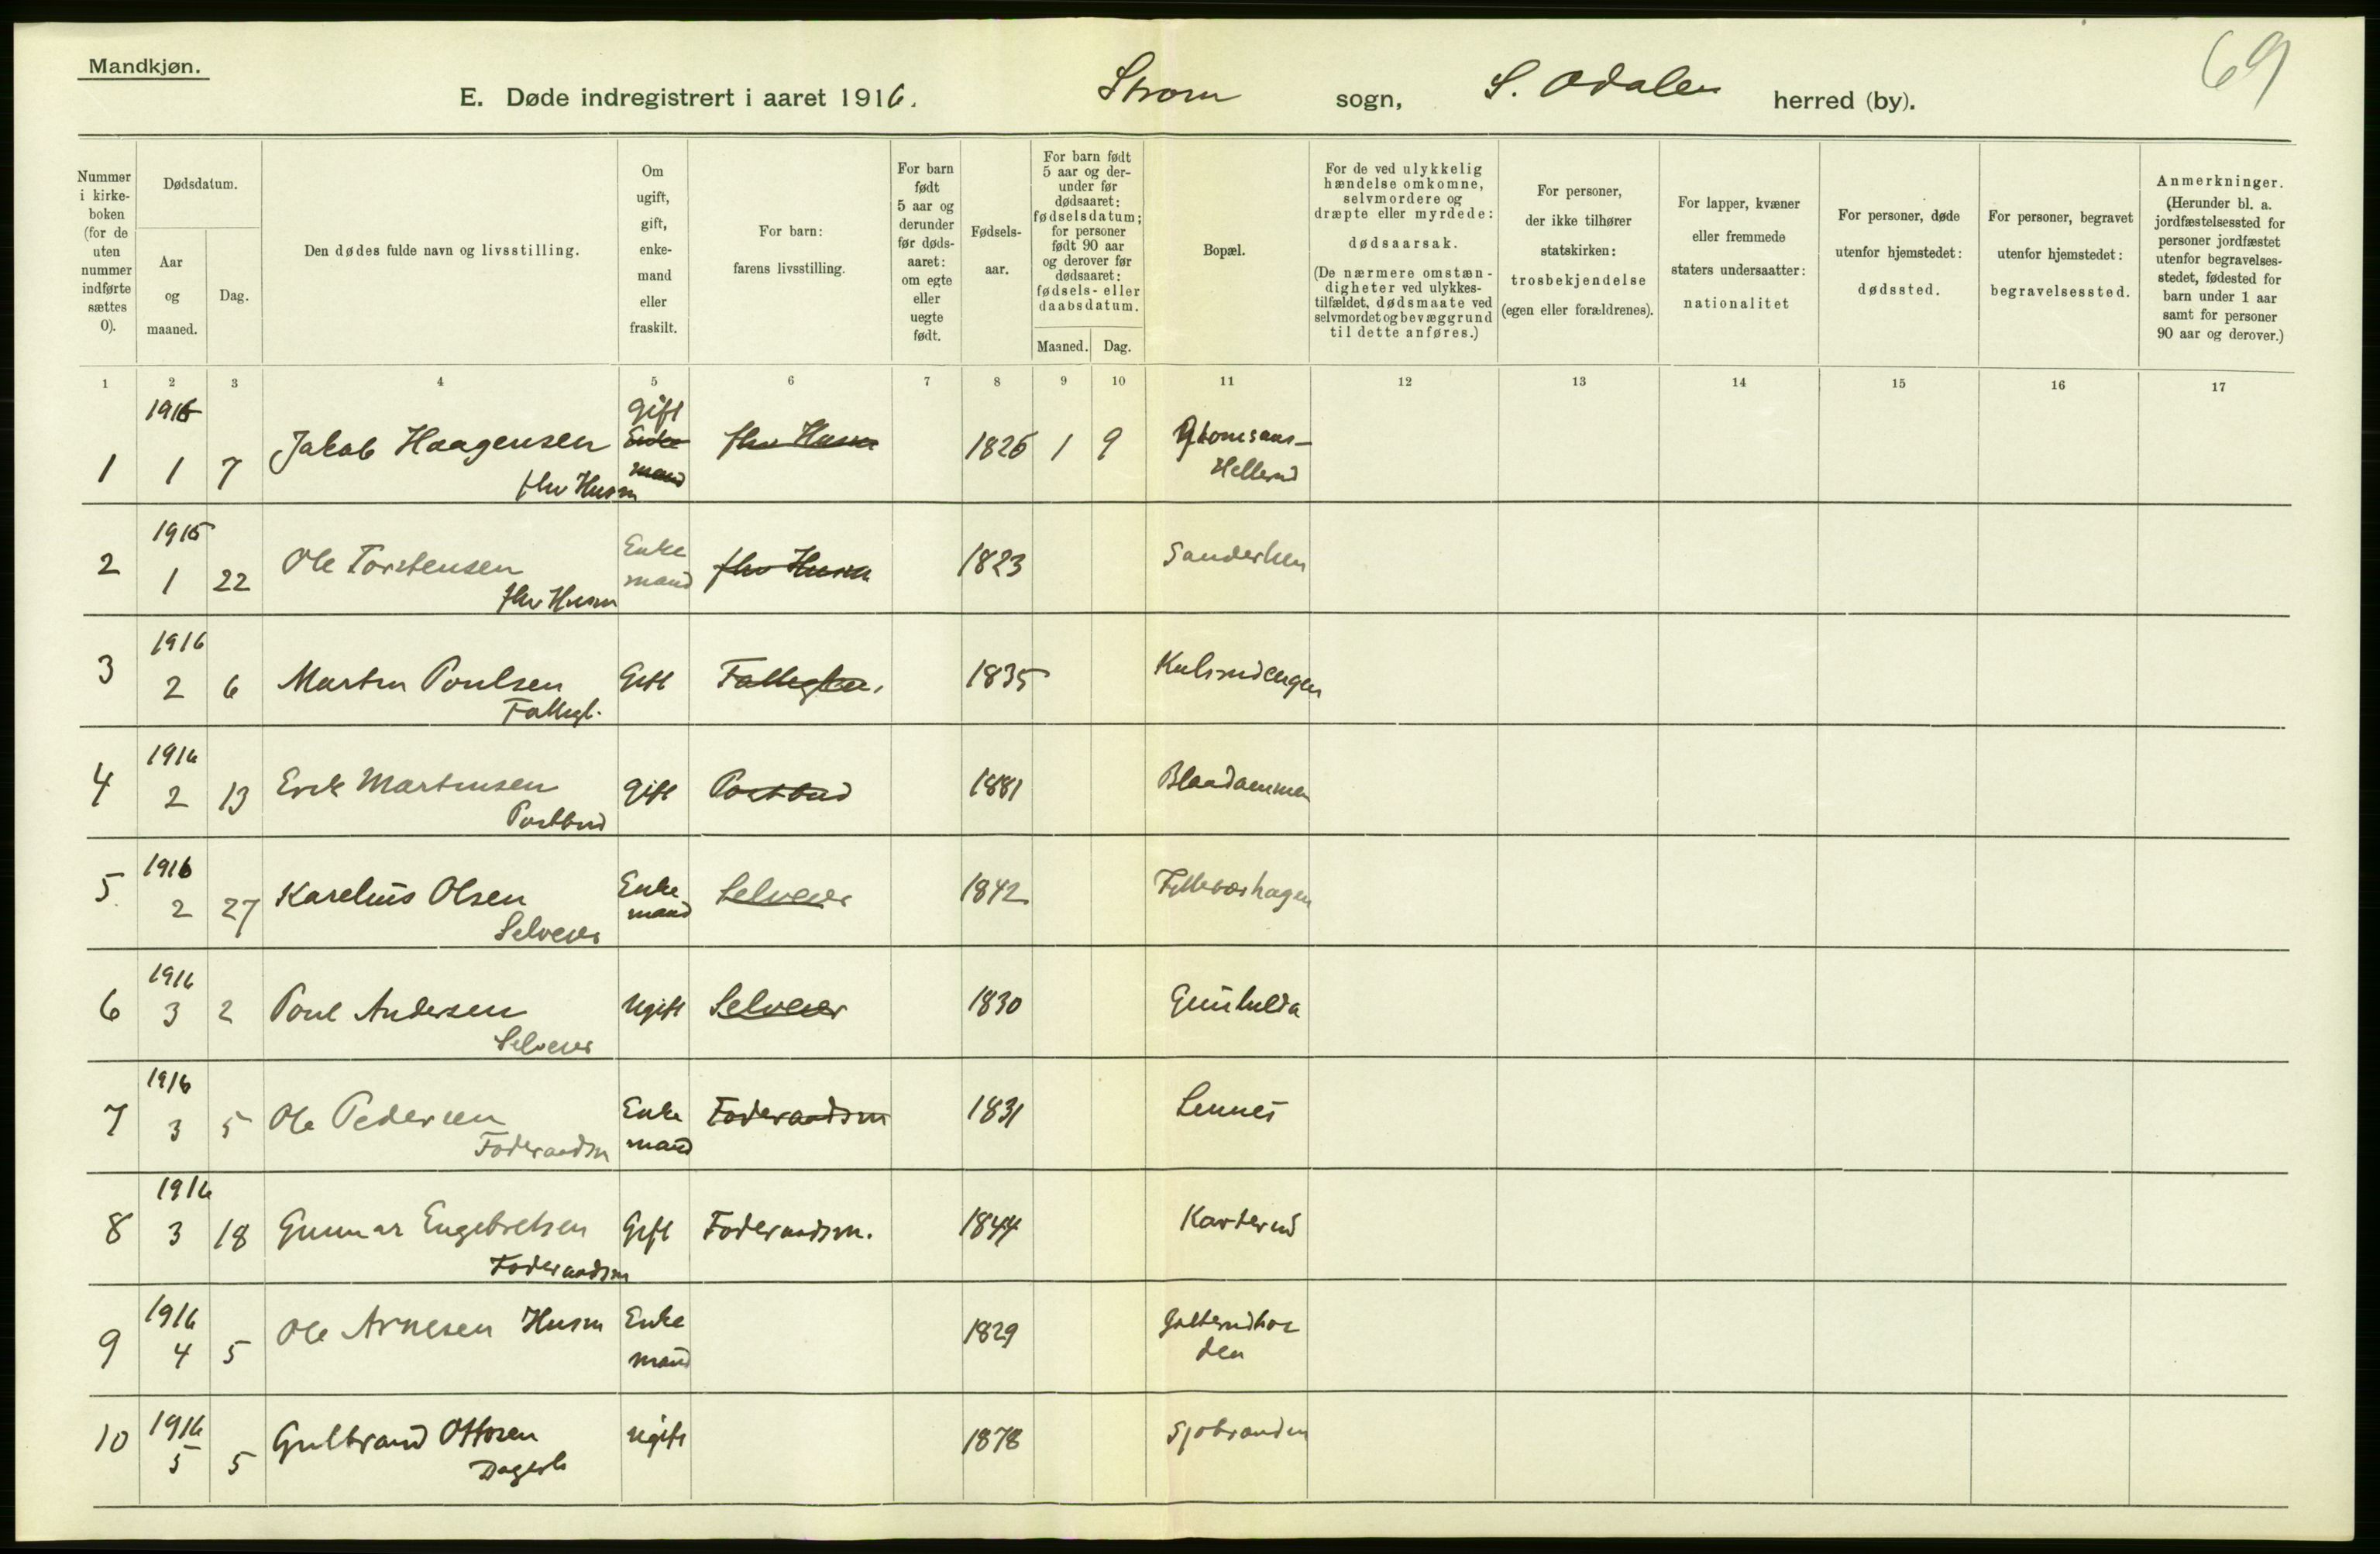 Mandkjøn.
69
E. Døde indregistrert i aaret 1916. Strøm sogn, S. Odalen herred (by).
Nummer i kirke- boken (for de uten nummer indførte sættes 0).
Dødsdatum.
Aar og maaned.
Dag.
Den dødes fulde navn og livsstilling.
Om ugift, gift, enke- mand eller fraskilt.
For barn: farens livsstilling.
For barn født 5 aar og derunder før døds- aaret: om egte eller uegte født.
Fødsels- aar.
For barn født 5 aar og der- under før dødsaaret: fødselsdatum; for personer født 90 aar og derover før dødsaaret: fødsels- eller daabsdatum.
Maaned. Dag.
Bopæl.
For de ved ulykkelig hændelse omkomne, selvmordere og dræpte eller myrdede: dødsaarsak. (De nærmere omstæn- digheter ved ulykkes- tilfældet, dødsmaate ved selvmordet og bevæggrund til dette anføres.)
For personer, der ikke tilhører statskirken: trosbekjendelse (egen eller forældrenes).
For lapper, kvæner eller fremmede staters undersaatter: nationalitet
For personer, døde utenfor hjemstedet: dødssted.
For personer, begravet utenfor hjemstedet: begravelsessted.
Anmerkninger. (Herunder bl. a. jordfæstelsessted for personer jordfæstet utenfor begravelses- stedet, fødested for barn under 1 aar samt for personer 90 aar og derover.)
1 2 3 4 5 6 7 8 9 10 11 12 13 14 15 16 17
1916 Gift
1 1 7 Jakob Haagensen Enke mand fhv Husm 1826 1 9
fhv Husm Hellerud
1916
2 1 22 Ole Torstensen Enke mand fhv Husm 1823
fhv Husm
1916
3 2 6 Martin Poulsen Gift 1835 Kulsrudengen
Fattigl.
1916
4 2 13 Erik Martinsen Gift Postbud 1881 Blaadammen
Postbud
1916
5 2 27 Karelius Olsen Enke mand Selveier 1842
Selveier
1916
6 3 2 Poul Andersen Ugift Selveier 1830
Selveier
1916
7 3 5 Ole Pedersen Enke mand Føderaadsm 1831
Føderaadsm
1916
8 3 18 Gunnar Engebretsen Gift Føderaadsm. 1844 Karterud
Føderaadsm
1916
9 4 5 Ole Arnesen Husm Enke mand 1829
1916
10 5 5 Gulbrand Ottosen Ugift 1878
Dagarb